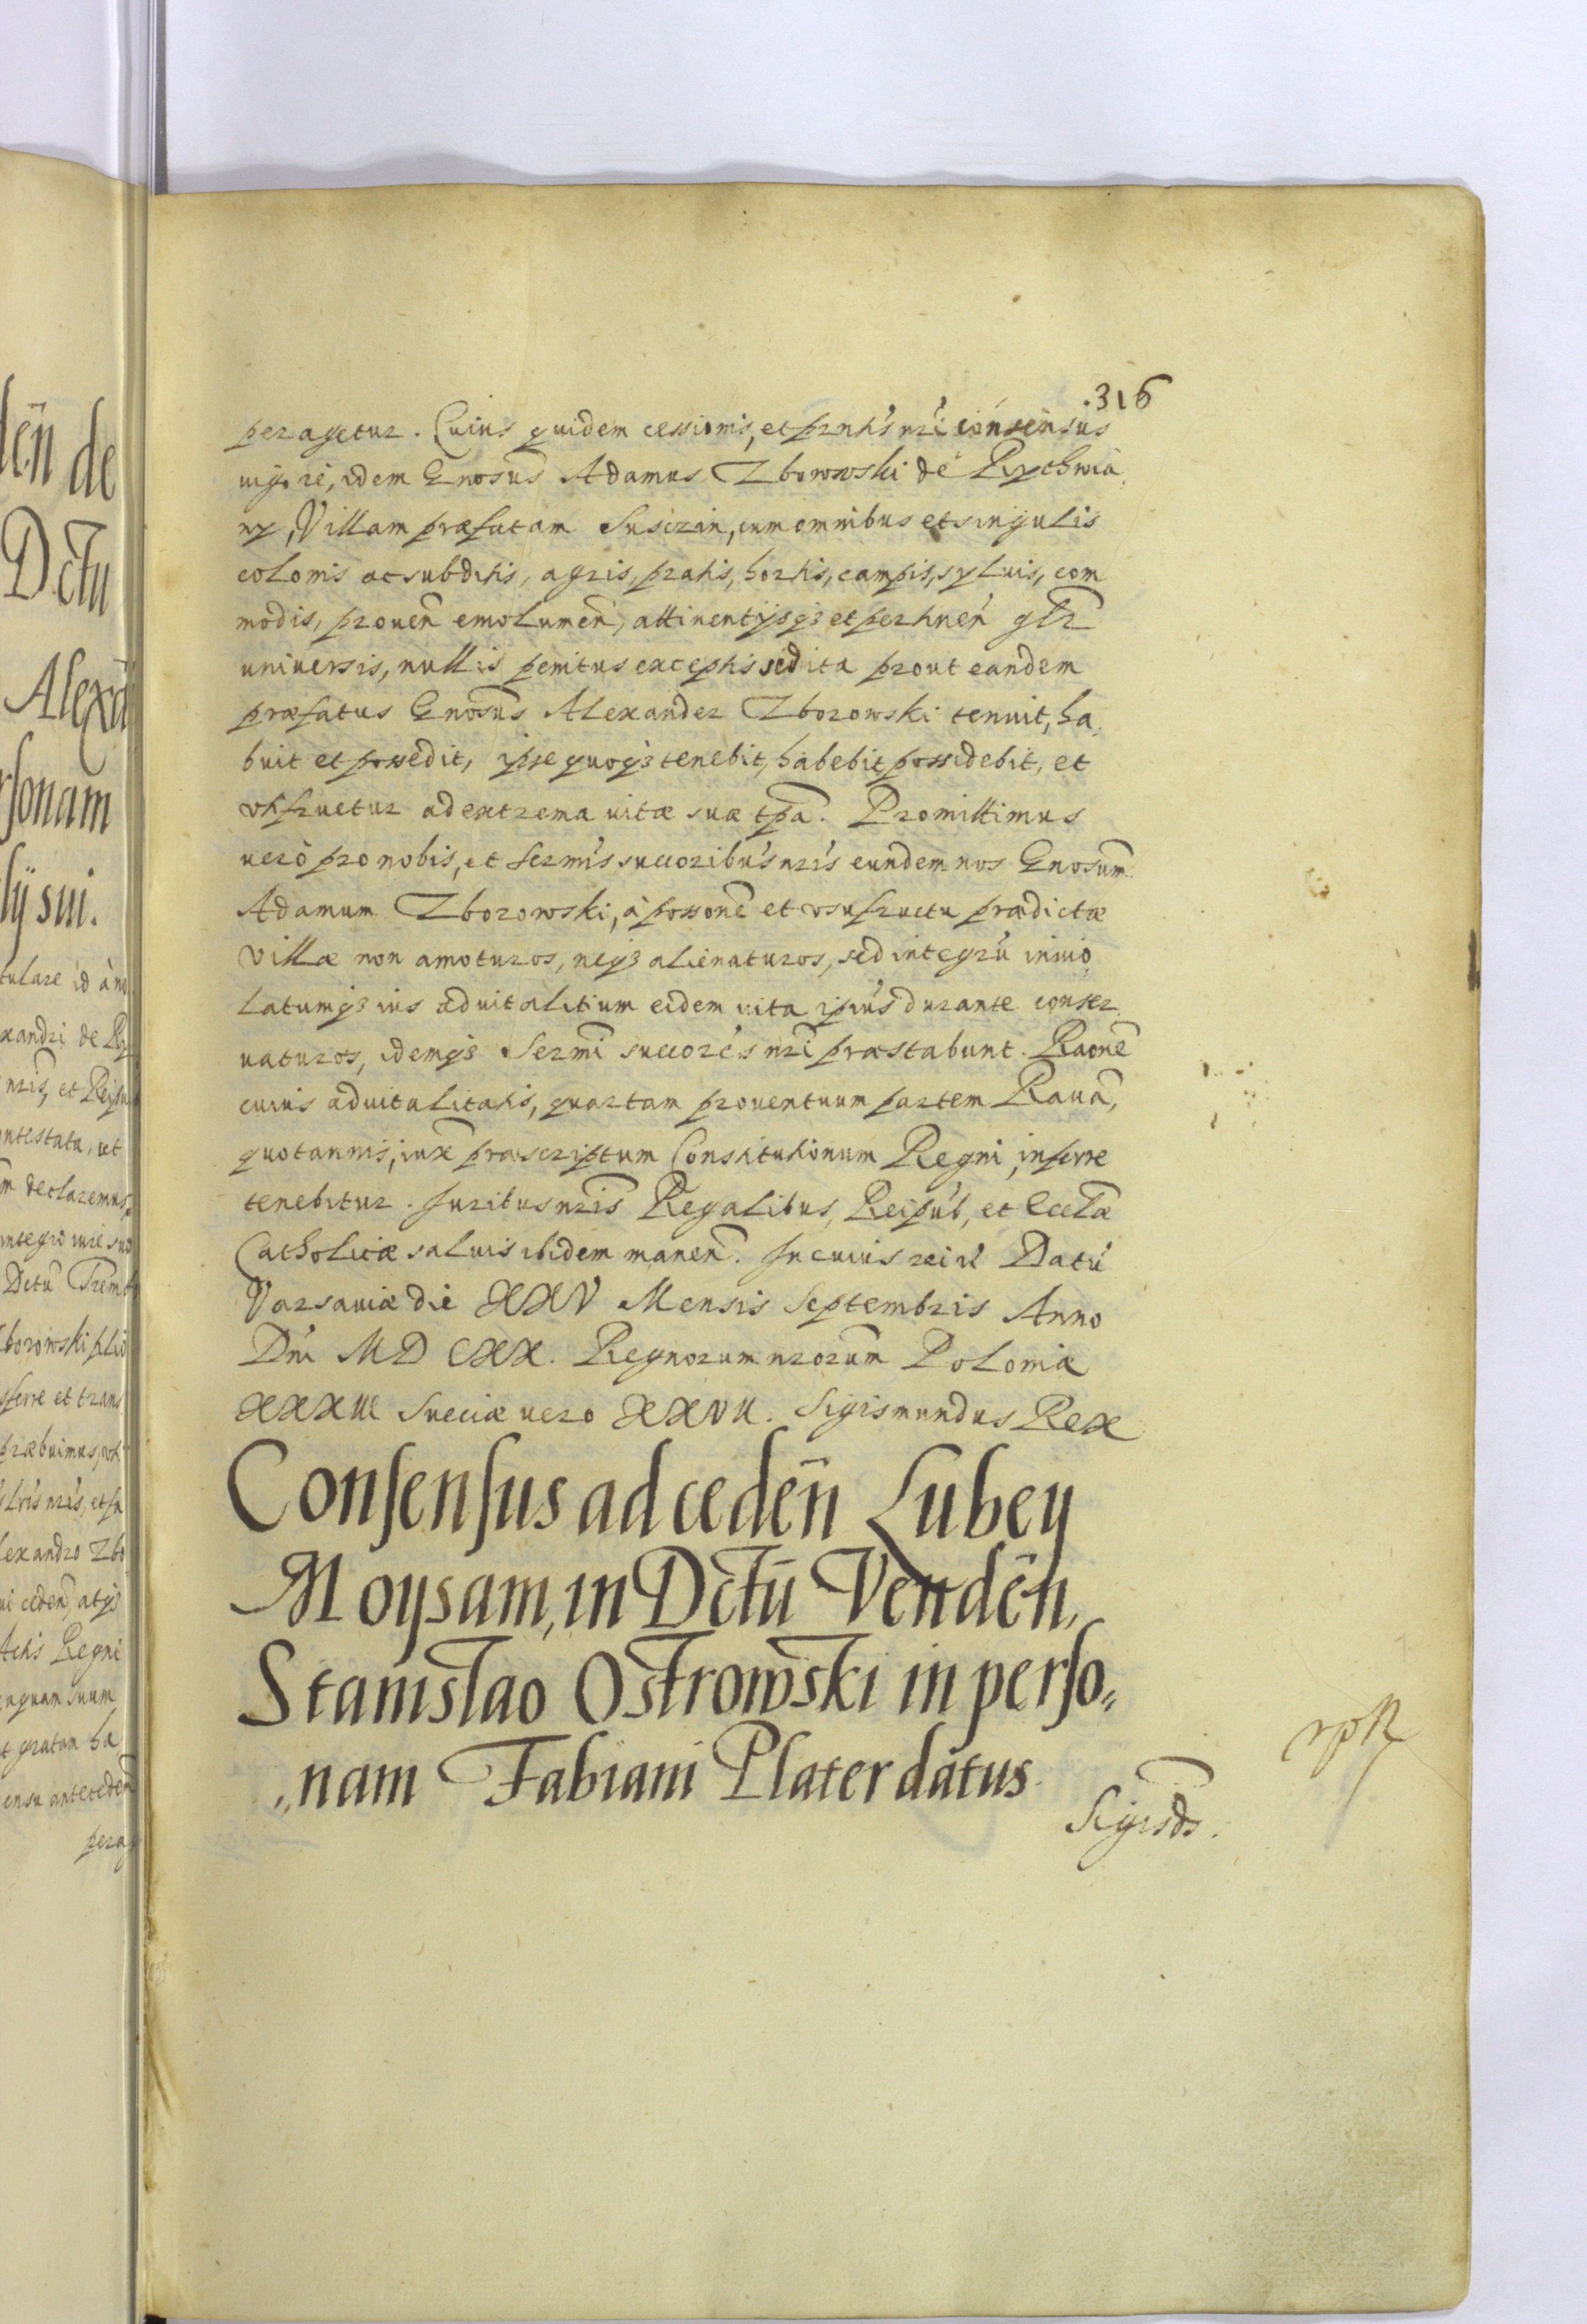 .316
peragetur. Cuius quidem cessionis, et prntis nri consensus
vigore, idem Gnosus Adamus Zborowski de Rychwia
ny, Villam præfatam Susczin, cum omnibus et singulis
colonis ac subditis, agris, pratis, hortis, campis, sylvis, com
modis, prouen emolumen, attinentijsq3 et pertinen glr
universis, nullis penitus exceptis sed ita prout eandem
præfatus Gnosus Alexander Zborowski tenuit, ha,
buit et possedit, ipse quoq3 tenebit, habebit possidebit, et
utifruetur ad extrema vitæ suæ tpa. Promittimus
verò pro nobis, et Sermis succoribus nris eundem nos Gnosum
Adamum Zborowski, à possone et usufructu prædictæ
Villæ non amoturos, neq3 alienaturos, sed integrū invio,
latumq3 ius aduitalitium eidem vita ipius durante conser
uaturos, idemq3 Sermi succores nri præstabunt. Raone
cuius aduitalitatis, quartam prouentuum partem Rauā,
quotannis, iuxᵃ præscriptum Constitutionum Regni, inferre
tenebitur. Juribus nris Regalibus, Reipub, et Eccla
Catholicæ saluis ibidem manen. In cuius rei Datū
Varsaviæ die XXV Mensis Septembris Anno
Dni MD CXX. Regnorum nrorum Poloniæ
XXXIII Sueciæ vero XXVII. Sigismundus Rex
Consensus ad cedēn Lubey
Moysam, in Dctū Vendēn,
Stanislao Ostrowski in perso„
„nam Fabiani Plater datus
Sigisds.
lēn de
Dctū
Alexā
rsonam
lij sui.
tulare id à no
xandri de Ry
nris, et Reipu
ontestata, ut
m declaremus,
integro iure suo
Dctū Trem
borowski filio
sferre et trans
præbuimus, uti
lris nris, et
lexandro Zbo
ui ceden, atq3
Actis Regni
aquam suum
t gratam ha
ensu anteceden
perag